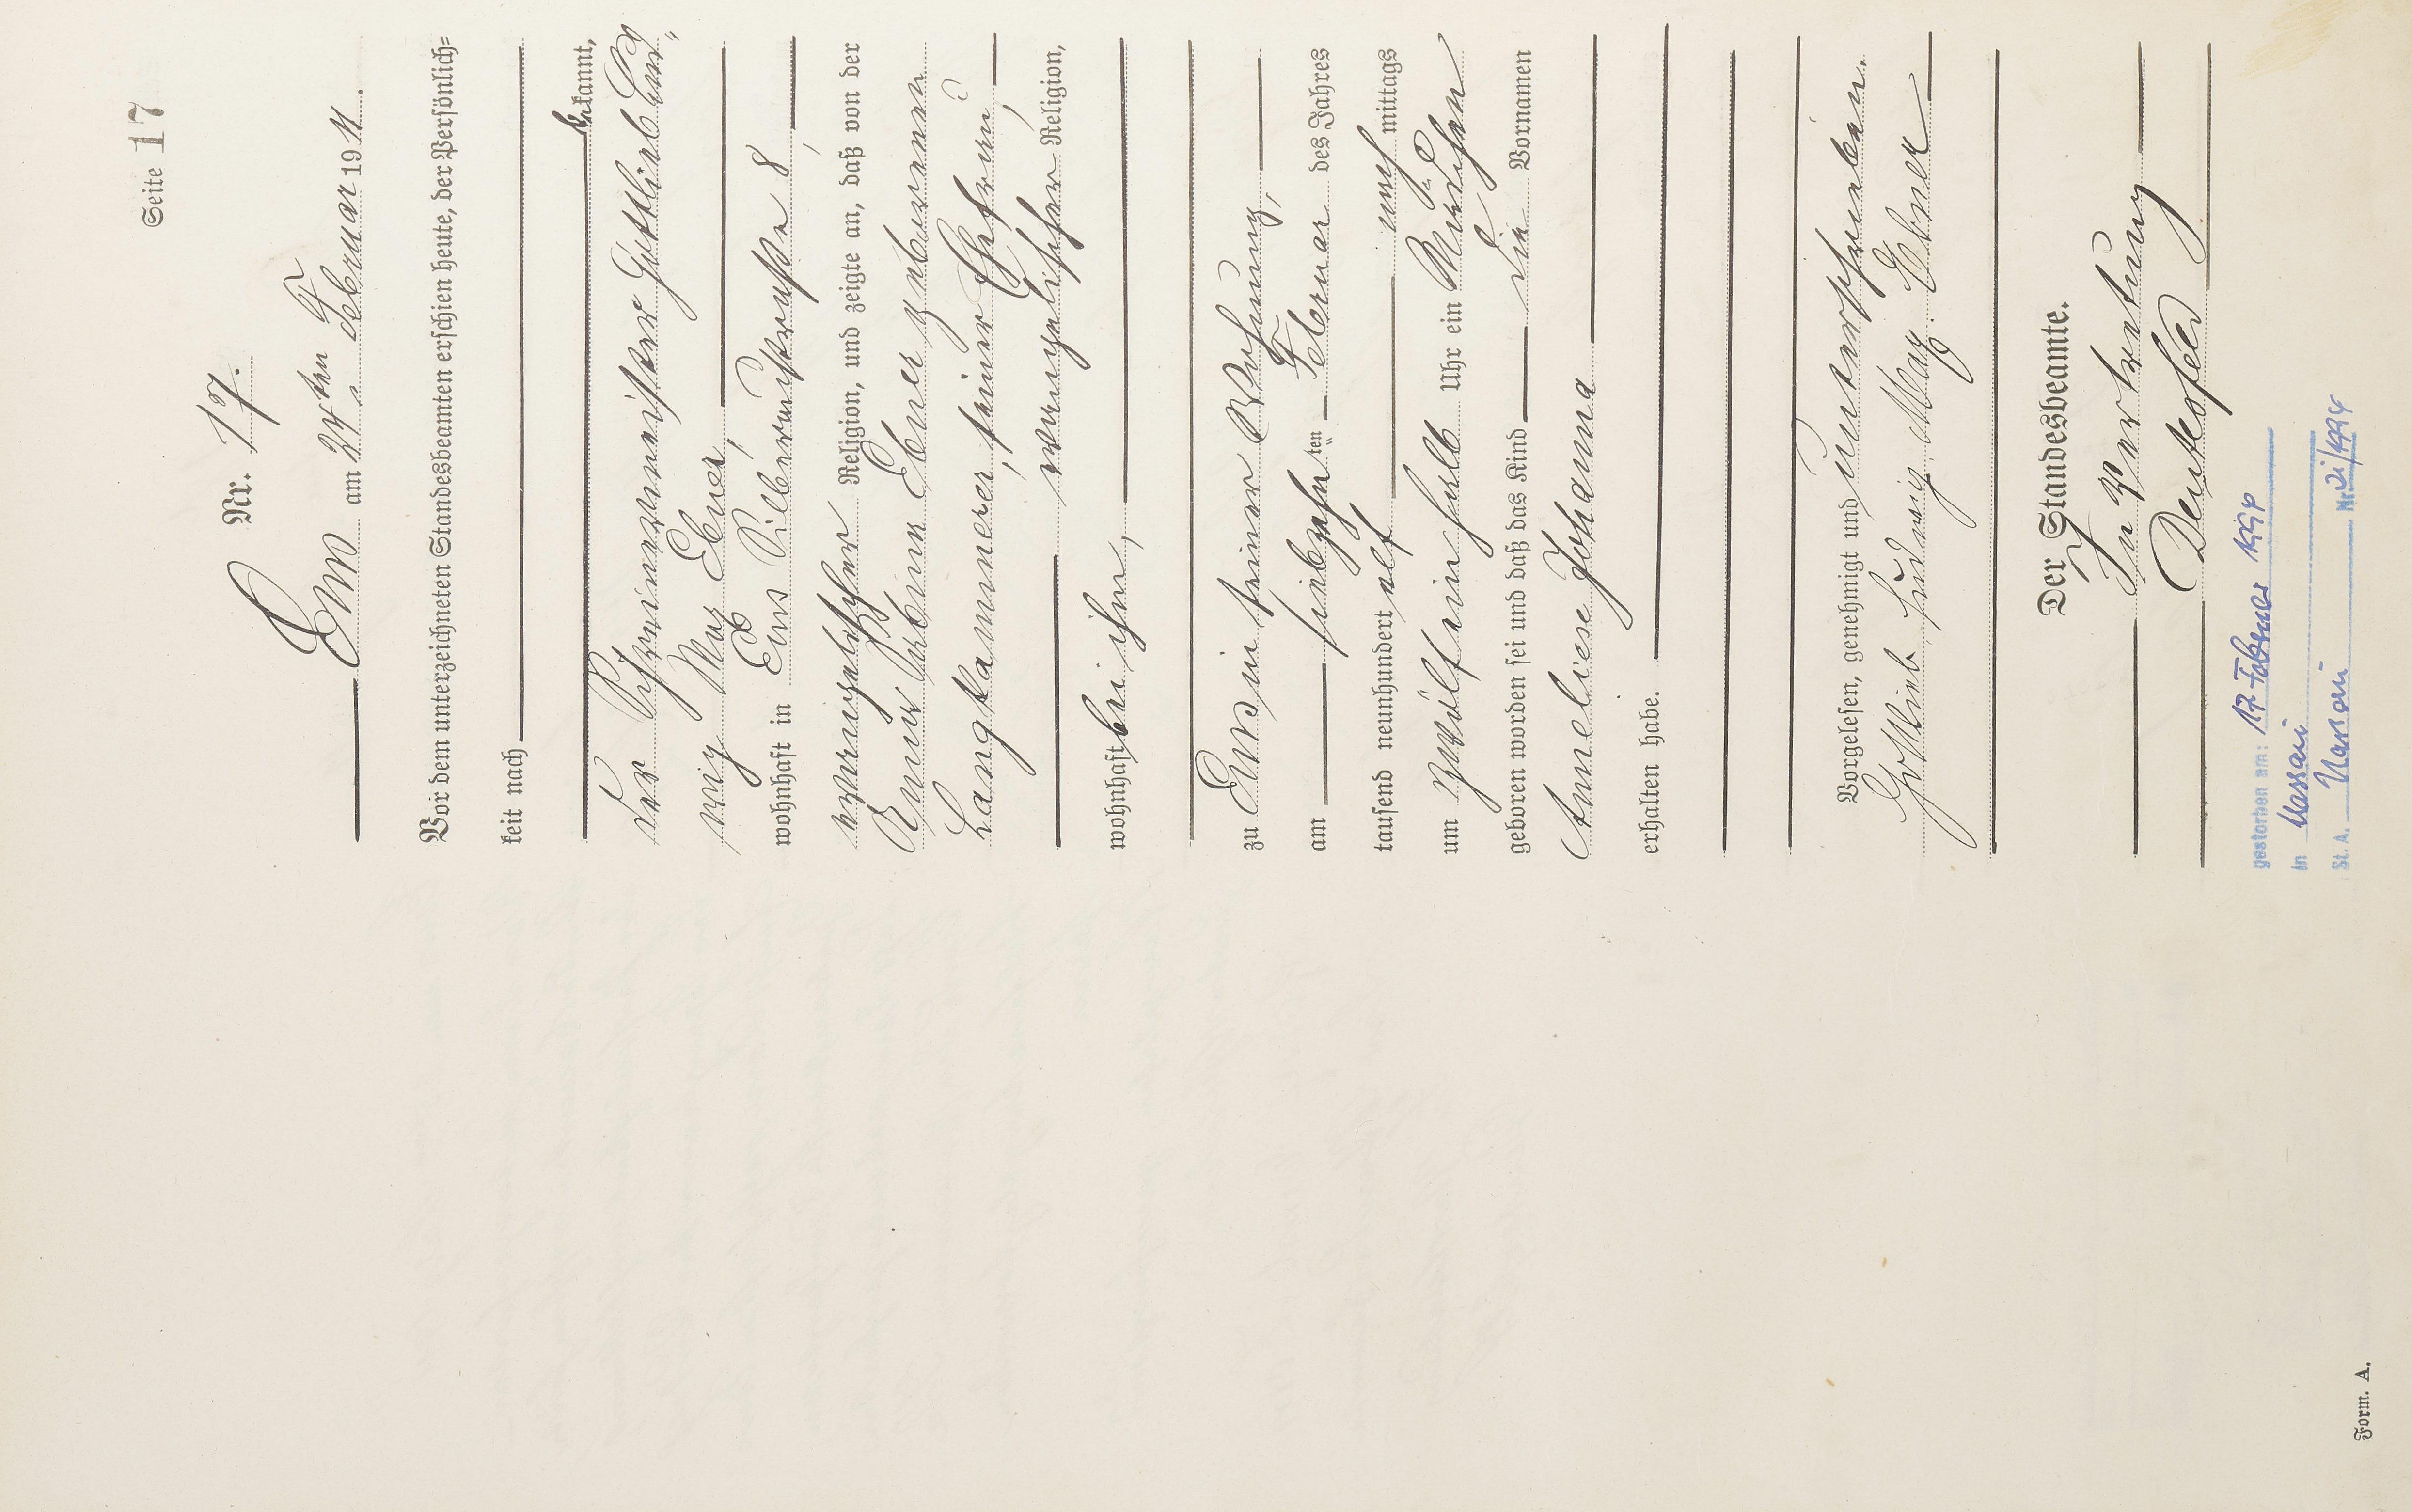 Seite 17
Nr. 17.
Ems am 24ten Februar 1911.
Vor dem unterzeichneten Standesbeamten erschien heute, der Persönlich=
keit nach
bekannt,
der Schreinermeister Gottlieb Lud„
wig Max Ebner,
wohnhaft in Ems Silberaustraße 8,
evangelischer Religion, und zeigte an, daß von der
Ebner geborenen
Langkammerer, seiner Ehefrau,
evangelischer Religion,
wohnhaft bei ihm,
zu Ems in seiner Wohnung,
am siebzehnten Februar des Jahres
tausend neunhundert elf nach mittags
um zwölfeinhalb Uhr ein Mädchen
geboren worden sei und daß das Kind die Vornamen
Anneliese Johanna
erhalten habe.
Vorgelesen, genehmigt und unterschrieben.
Gottlieb Ludwig Max Ebner
Der Standesbeamte.
In Vertretung
gestorben am: 17. Februar 1994
in Nassau
St. A. Nassau Nr. 21/1994
Form. A.